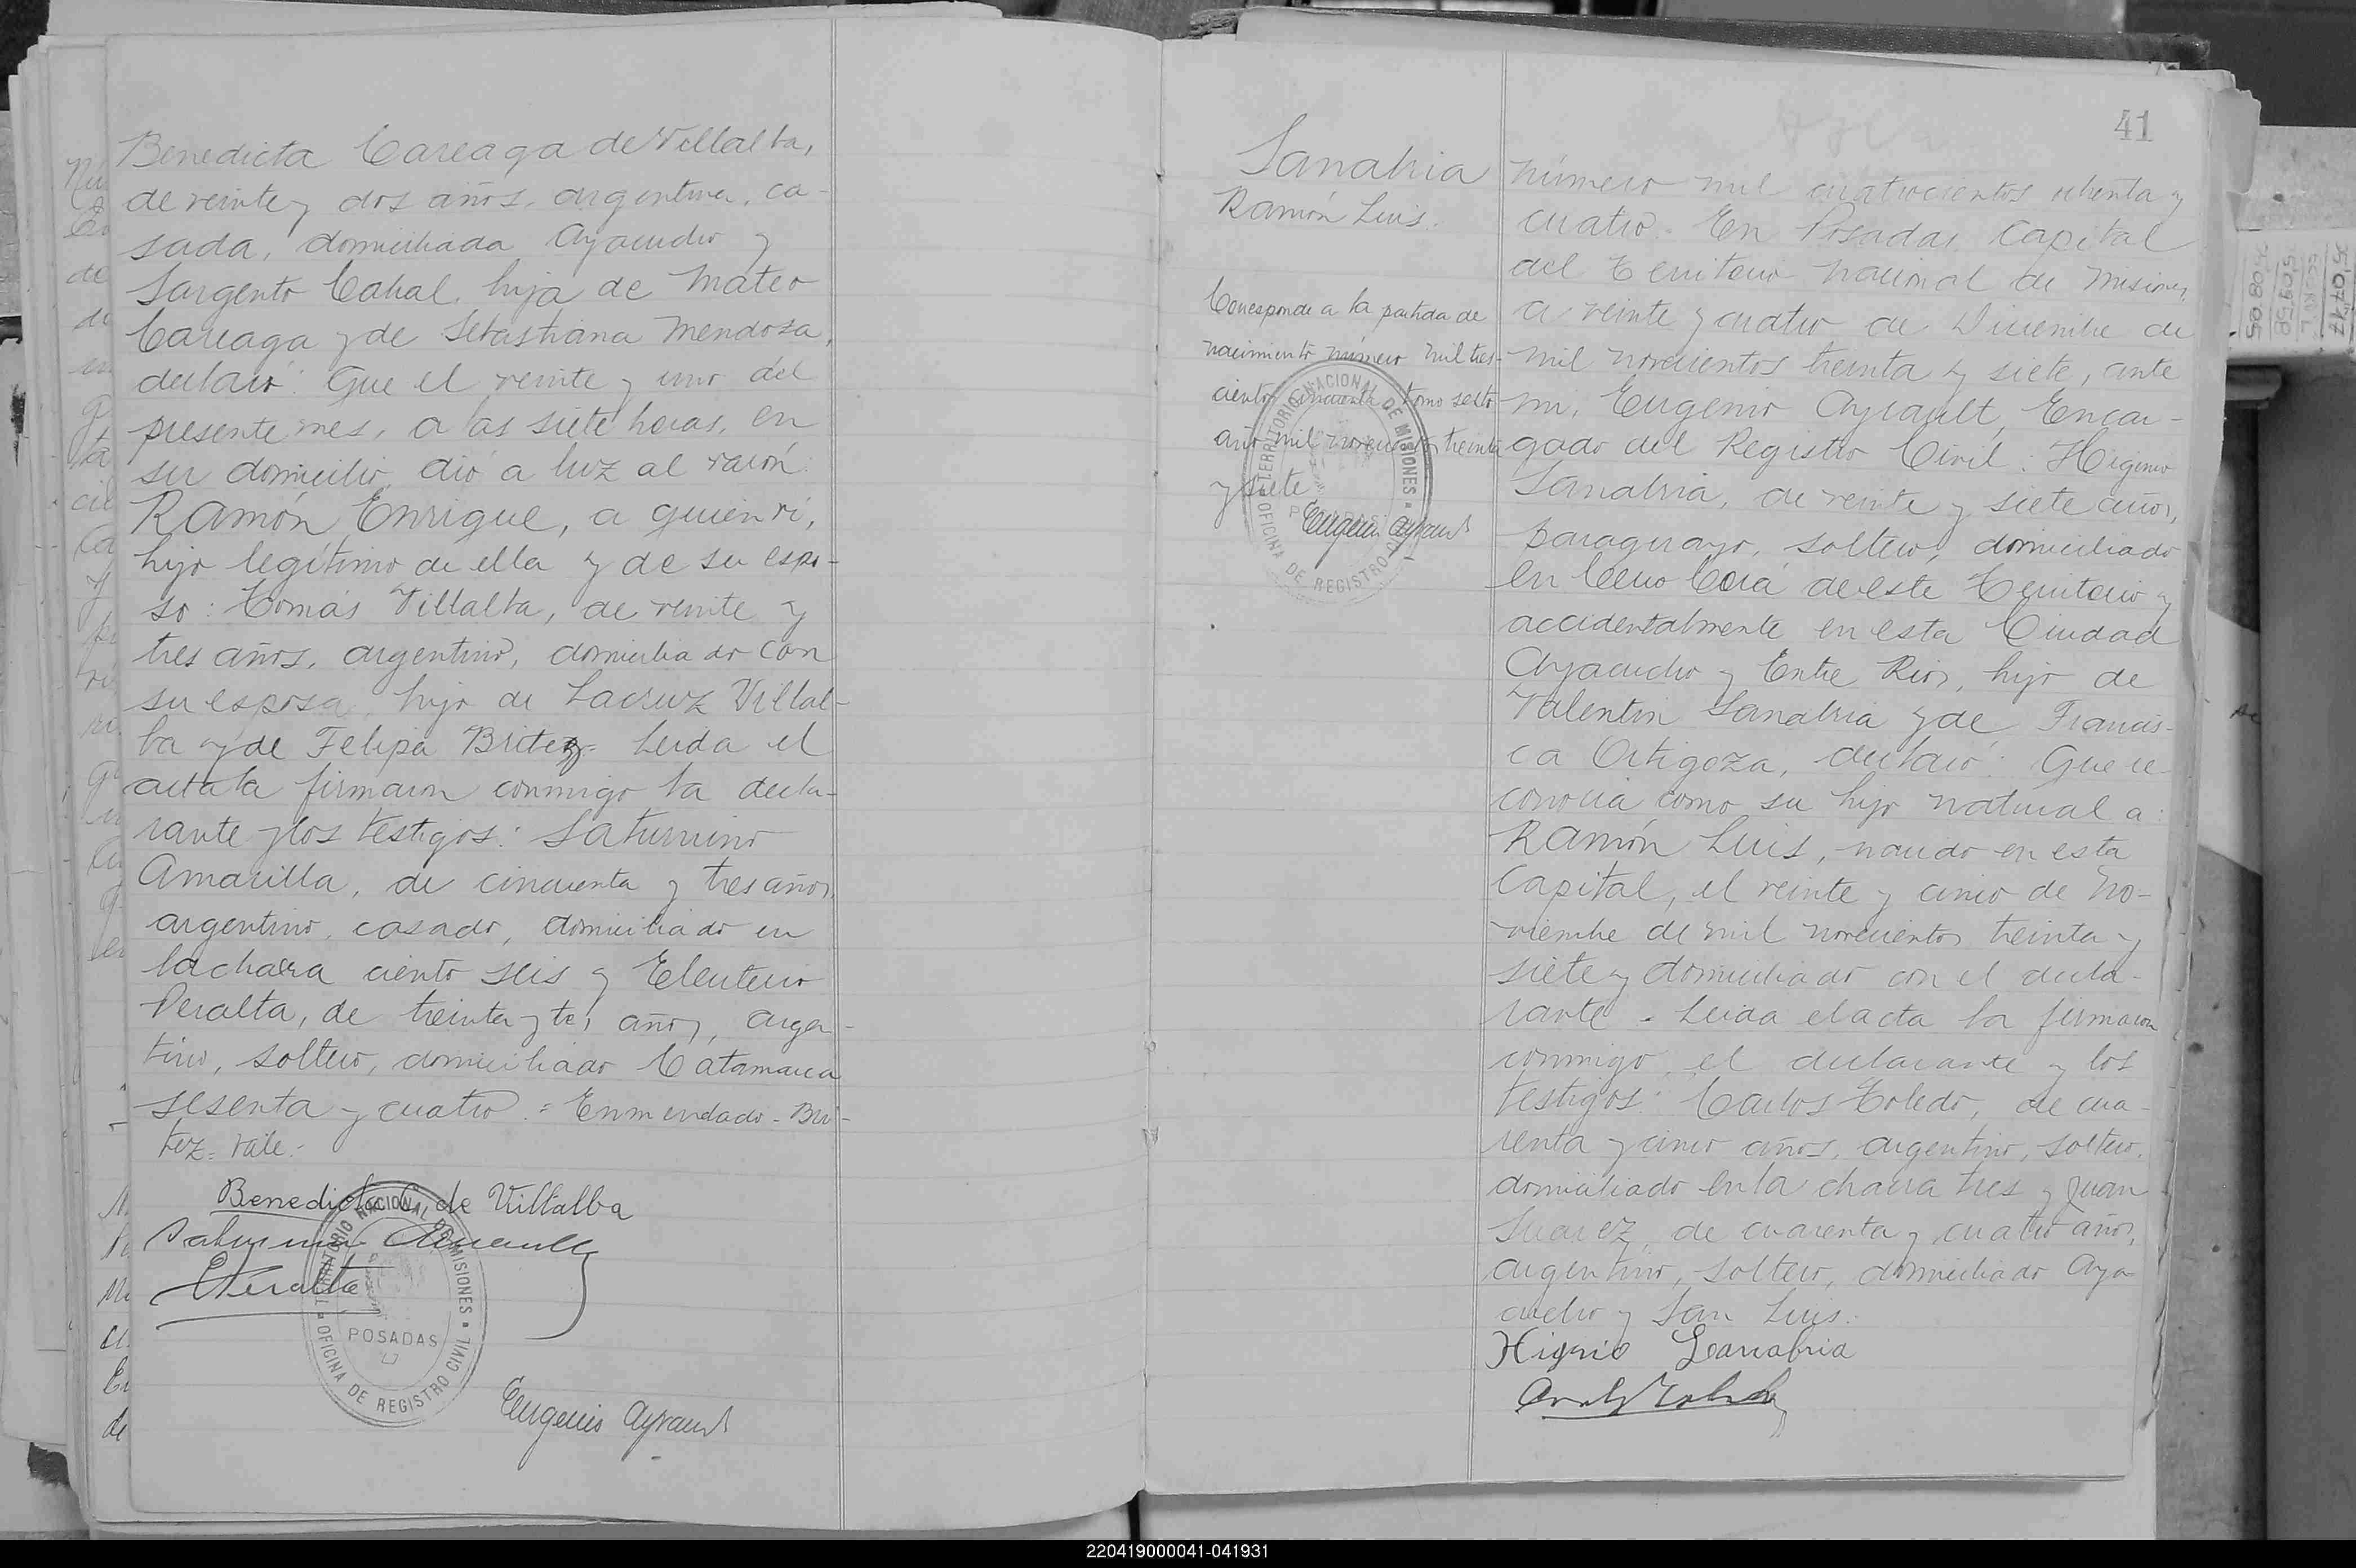 Benedicta Careaga de Villalba,
de veinte y dos años, argentina, ca-
sada, domiciliada Ayacucho y
Sargento Cabral, hija de Mateo
Careaga y de Sebastiana Mendoza,
declaró: Que el veinte y uno del
presente mes, a las siete horas, en
su domicilio, dió a luz al varón:
Ramón Enrique, a quien vi,
hijo legítimo de ella y de su espo-
so: Tomás Villalba, de veinte y
tres años, argentino, domiciliado con
su esposa, hijo de Lacruz Villal-
ba y de Felipa Britez. Leida el
acta la firmaron conmigo la decla-
rante y los testigos: Saturnino
Amarilla, de cincuenta y tres años,
argentino, casado, domiciliado en
la chacra ciento seis y Eleuterio
Peralta, de treinta y tres años, argen-
tino, soltero, domiciliado Catamarca
sesenta y cuatro. = Enmendado - Bri-
tez = vale.-
Benedicta C. de Villalba
Saturnino Amarilla
EPeralta
TERRITORIO NACIONAL DE MISIONES
POSADAS
OFICINA DE REGISTRO CIVIL
Eugenio Ayrault
41
Sanabria
Ramón Luis.
Corresponde a la partida de
nacimiento número mil tres-
cientos cincuenta tomo sexto
año mil novecientos treinta
y siete
Eugenio Ayrault
TERRITORIO NACIONAL DE MISIONES
POSADAS
OFICINA DE REGISTRO CIVIL
Número mil cuatrocientos ochenta y
cuatro. En Posadas Capital
del Territorio Nacional de Misiones,
a veinte y cuatro de Diciembre de
mil novecientos treinta y siete, ante
mi, Eugenio Ayrault, Encar-
gado del Registro Civil: Higinio
Sanabria, de veinte y siete años,
paraguayo, soltero, domiciliado
en Cerro Corá de este Territorio y
accidentalmente en esta Ciudad
Ayacucho y Entre Rios, hijo de
Valentin Sanabria y de Francis-
ca Ortigoza, declaró: Que re-
conocia como su hijo natural a:
Ramón Luis, nacido en esta
Capital, el veinte y cinco de No-
viembre de mil novecientos treinta y
siete y domiciliado con el decla-
rante. Leida el acta la firmaron
conmigo el declarante y los
testigos: Carlos Toledo, de cua-
renta y cinco años, argentino, soltero,
domiciliado en la chacra tres y Juan
Suarez, de cuarenta y cuatro años,
argentino, soltero, domiciliado Aya-
cucho y San Luis.
Higinio Sanabria
220419000041-041931